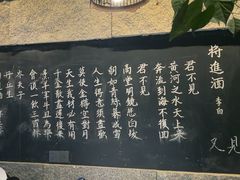 將進酒
李白
君不見
黃河之水天上來
奔流到海不復回
君不見
高堂明鏡悲白髮
朝如青絲暮成雪
人生得意須盡歡
莫使金樽空對月
天生我材必有用
千金散盡還復來
烹羊宰牛且為樂
會須一飲三百杯
岑夫子
丹丘生
又見